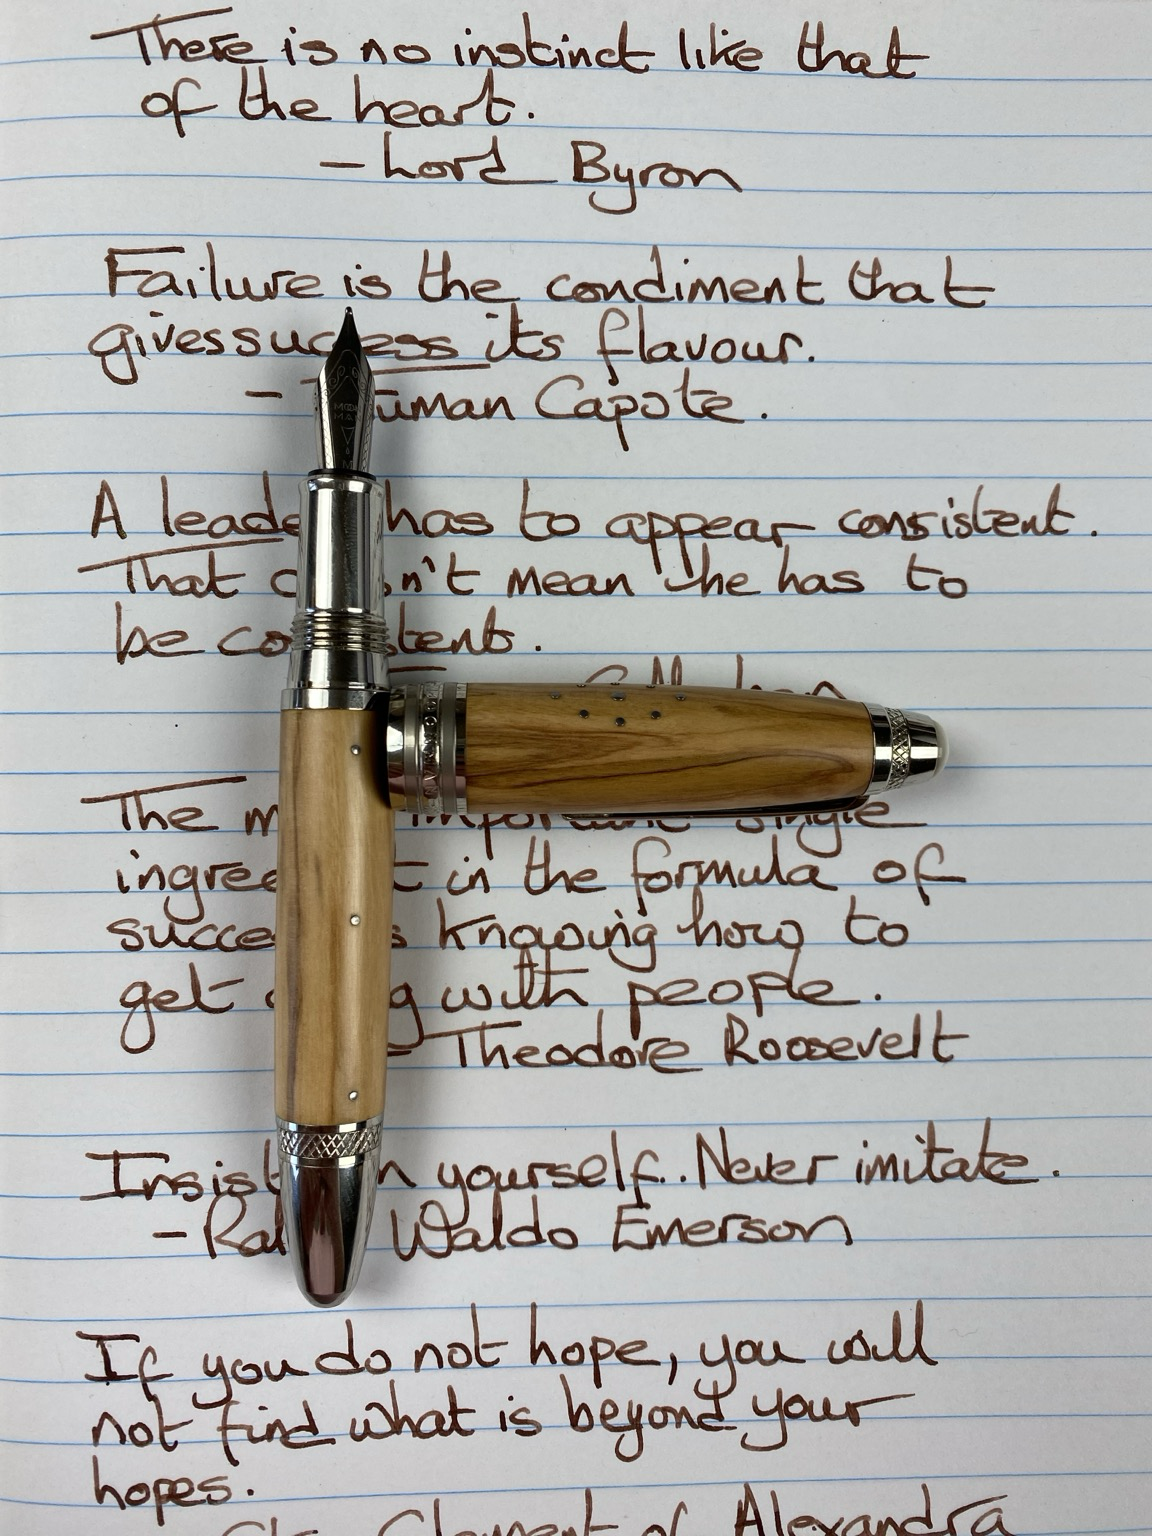 There is no instinct like that
of the heart.
- Lord Byron
Failure is the condiment that
gives success its flavour.
- Truman Capote.
A leader has to appear consistent.
That doesn't mean he has to
be consistent.
The most important single
ingredient in the formula of
success is knowing how to
get along with people.
- Theodore Roosevelt
Insist on yourself. Never imitate.
- Ralph Waldo Emerson
If you do not hope, you will
not find what is beyond your
hopes.
Clement of Alexandra